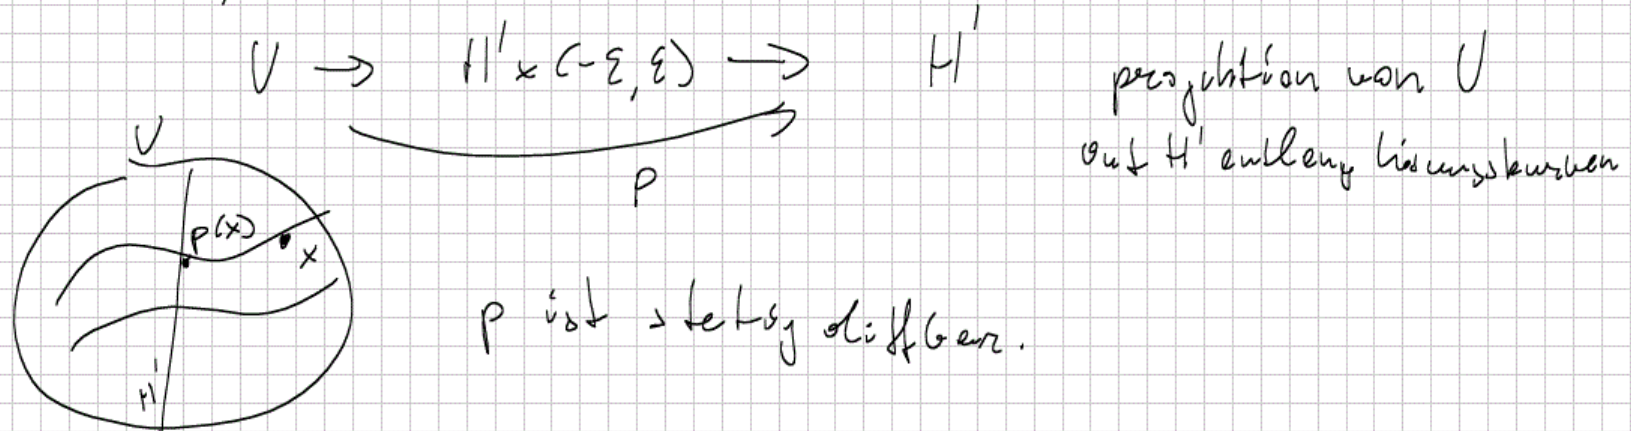 U → H' × (-ε, ε) → H' projektion von U
p auf H' entlang Lösungskurven
U
p(x)
x
p ist stetig diffbar.
H'